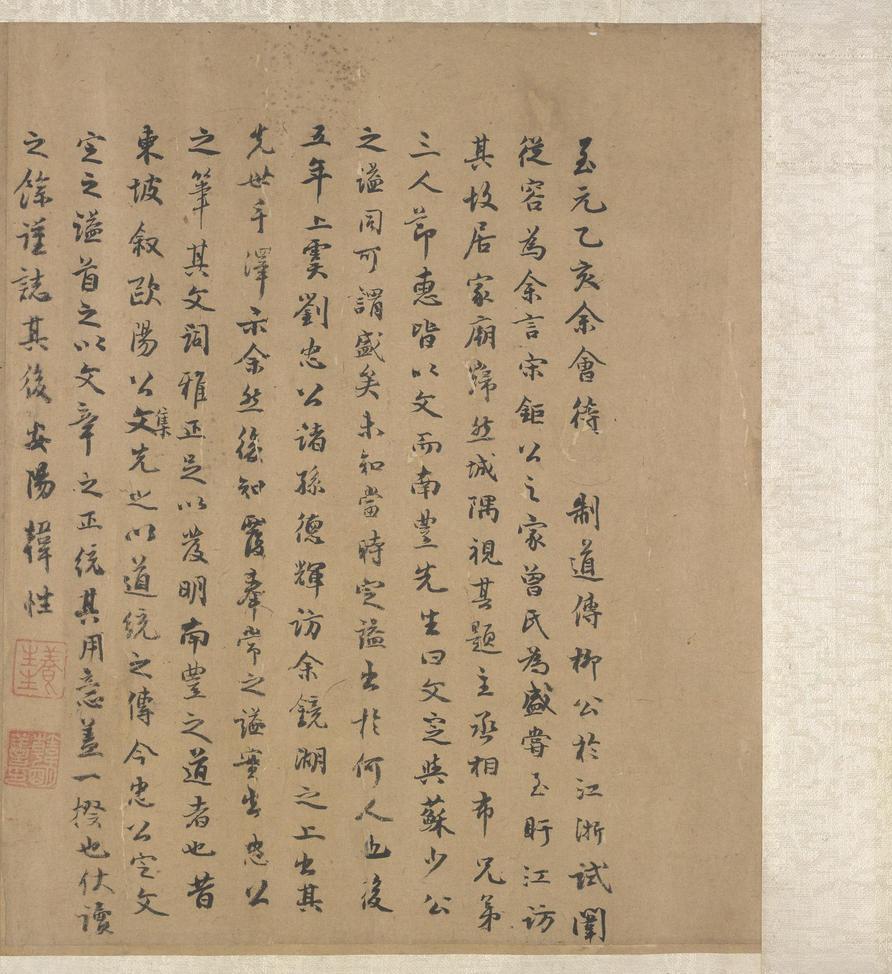 至元乙亥余會待 制道傳柳公於江浙試闈
從容為余言宋鉅公之家曾氏為盛嘗至盱江訪
其故居家廟巋然城隅視其題主丞相布兄弟
三人節惠皆以文而南豐先生曰文定與蘇少公
之謚同可謂盛矣未知當時定謚出於何人也後
五年上虞劉忠公諸孫德輝訪余鏡湖之上出其
先世手澤示余然後知覆奉常之謚實出忠公
之筆其文詞雅正足以發明南豐之道者也昔
東坡叙歐陽公文集先之以道統之傳今忠公定文
定之謚首之以文章之正統其用意蓋一揆也伏讀
之餘謹誌其後安陽韓性